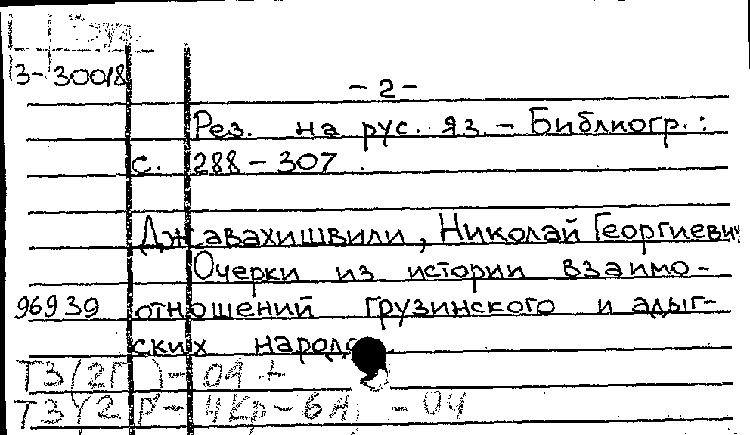 3-30018
- 2 -
Рез. на рус. яз. - Библиогр.:
с. 288 - 307.
Джавахишвили, Николай Георгиевич
Очерки из истории взаимо-
96939 отношений грузинского и адыг-
ских народов.
Т3(2Г)-04